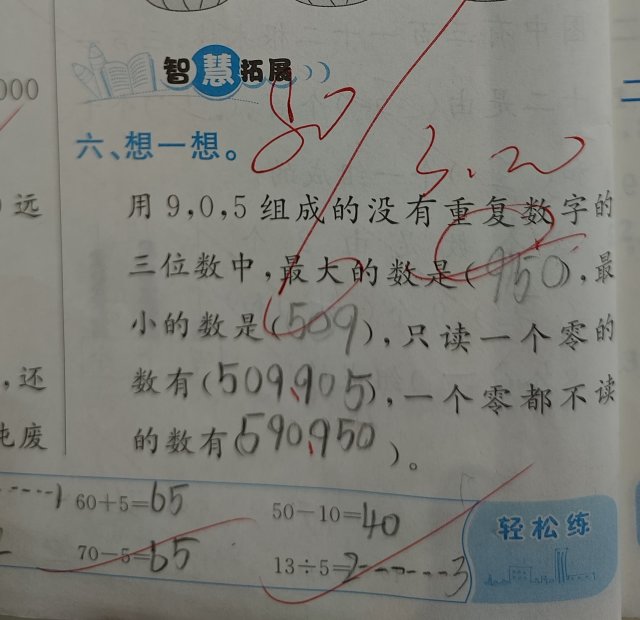 000
智慧拓展
六、想一想。
远
用9,0,5组成的没有重复数字的
三位数中,最大的数是(950),最
小的数是(509),只读一个零的
,还
数有(509、905),一个零都不读
废
的数有(590、950)。
60+5=65
50-10=40
70-5=65
13÷5=2------3
轻松练
3.20